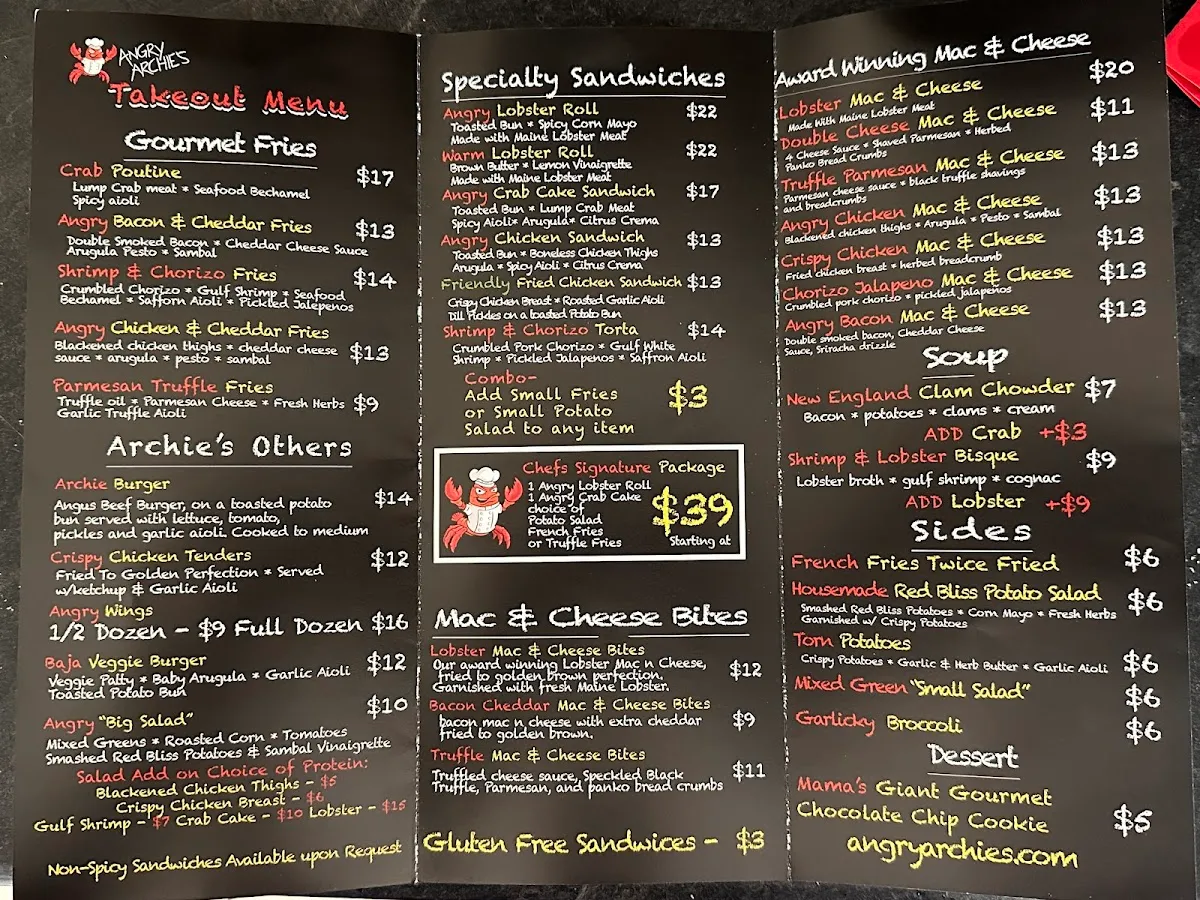 ANGRY
ARCHIE'S
Takeout Menu
Gourmet Fries
Crab Poutine $17
Lump Crab meat * Seafood Bechamel
Spicy aioli
Angry Bacon & Cheddar Fries $13
Double Smoked Bacon * Cheddar Cheese Sauce
Arugula Pesto * Sambal
Shrimp & Chorizo Fries $14
Crumbled Chorizo * Gulf Shrimp * Seafood
Bechamel * Safforn Aioli * Pickled Jalepenos
Angry Chicken & Cheddar Fries
Blackened chicken thighs * cheddar cheese $13
sauce * arugula * pesto * sambal
Parmesan Truffle Fries
Truffle oil * Parmesan Cheese * Fresh Herbs $9
Garlic Truffle Aioli
Archie's Others
Archie Burger
Angus Beef Burger, on a toasted potato $14
bun served with lettuce, tomato,
pickles and garlic aioli. Cooked to medium
Crispy Chicken Tenders $12
Fried To Golden Perfection * Served
w/ketchup & Garlic Aioli
Angry Wings
1/2 Dozen - $9 Full Dozen $16
Baja Veggie Burger $12
Veggie Patty * Baby Arugula * Garlic Aioli
Toasted Potato Bun
Angry "Big Salad" $10
Mixed Greens * Roasted Corn * Tomatoes
Smashed Red Bliss Potatoes & Sambal Vinaigrette
Salad Add on Choice of Protein:
Blackened Chicken Thighs - $5
Crispy Chicken Breast - $6
Gulf Shrimp - $7 Crab Cake - $10 Lobster - $15
Non-Spicy Sandwiches Available upon Request
Specialty Sandwiches
Angry Lobster Roll $22
Toasted Bun * Spicy Corn Mayo
Made with Maine Lobster Meat
Warm Lobster Roll $22
Brown Butter * Lemon Vinaigrette
Made with Maine Lobster Meat
Angry Crab Cake Sandwich $17
Toasted Bun * Lump Crab Meat
Spicy Aioli* Arugula* Citrus Crema
Angry Chicken Sandwich $13
Toasted Bun * Boneless Chicken Thighs
Arugula * Spicy Aioli * Citrus Crema
Friendly Fried Chicken Sandwich $13
Crispy Chicken Breast * Roasted Garlic Aioli
Dill Pickles on a toasted Potato Bun
Shrimp & Chorizo Torta $14
Crumbled Pork Chorizo * Gulf White
Shrimp * Pickled Jalapenos * Saffron Aioli
Combo-
Add Small Fries
or Small Potato $3
Salad to any item
Chefs Signature Package
1 Angry Lobster Roll
1 Angry Crab Cake
choice of $39
Potato Salad
French Fries
or Truffle Fries Starting at
Mac & Cheese Bites
Lobster Mac & Cheese Bites
Our award winning Lobster Mac n Cheese,
fried to golden brown perfection. $12
Garnished with fresh Maine Lobster.
Bacon Cheddar Mac & Cheese Bites
bacon mac n cheese with extra cheddar $9
fried to golden brown.
Truffle Mac & Cheese Bites
Truffled cheese sauce, Speckled Black $11
Truffle, Parmesan, and panko bread crumbs
Gluten Free Sandwices - $3
Award Winning Mac & Cheese
Lobster Mac & Cheese $20
Made With Maine Lobster Meat
Double Cheese Mac & Cheese $11
4 Cheese Sauce * Shaved Parmesan * Herbed
Panko Bread Crumbs
Truffle Parmesan Mac & Cheese $13
Parmesan cheese sauce * black truffle shavings
and breadcrumbs
Angry Chicken Mac & Cheese $13
Blackened chicken thighs * Arugula * Pesto * Sambal
Crispy Chicken Mac & Cheese $13
Fried chicken breast * herbed breadcrumb
Chorizo Jalapeno Mac & Cheese $13
Crumbled pork chorizo * pickled jalapenos
Angry Bacon Mac & Cheese $13
Double smoked bacon, Cheddar Cheese
Sauce, Sriracha drizzle
Soup
New England Clam Chowder $7
Bacon * potatoes * clams * cream
ADD Crab +$3
Shrimp & Lobster Bisque $9
Lobster broth * gulf shrimp * cognac
ADD Lobster +$9
Sides
French Fries Twice Fried $6
Housemade Red Bliss Potato Salad $6
Smashed Red Bliss Potatoes * Corn Mayo * Fresh Herbs
Garnished w/ Crispy Potatoes
Torn Potatoes
Crispy Potatoes * Garlic & Herb Butter * Garlic Aioli $6
Mixed Green "Small Salad" $6
Garlicky Broccoli $6
Dessert
Mama's Giant Gourmet
Chocolate Chip Cookie $5
angryarchies.com